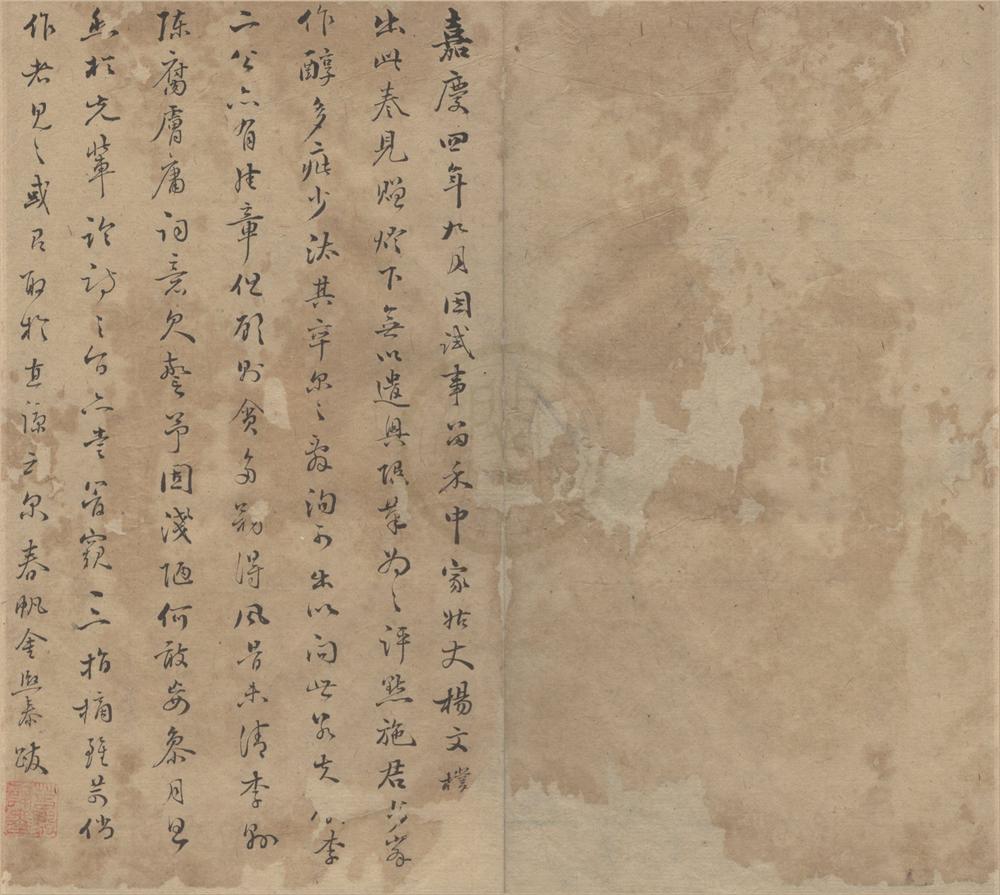 嘉慶四年九月因試事留禾中家姑丈楊文樸
出此卷見贈燈下無以遣興限筆為之評點施君少峯
作醇多疵少汰其率尔之者洵可出以问世吴
李二公亦有佳章但顧則貪多務得風骨未清李則
陈腐膚庸词意欠警予固淺陋何敢妄參月旦
然於先輩论诗之旨亦嘗管窺一二指摘雖苛倘
作者見之或有取於直諒云尔春帆金熙泰跋